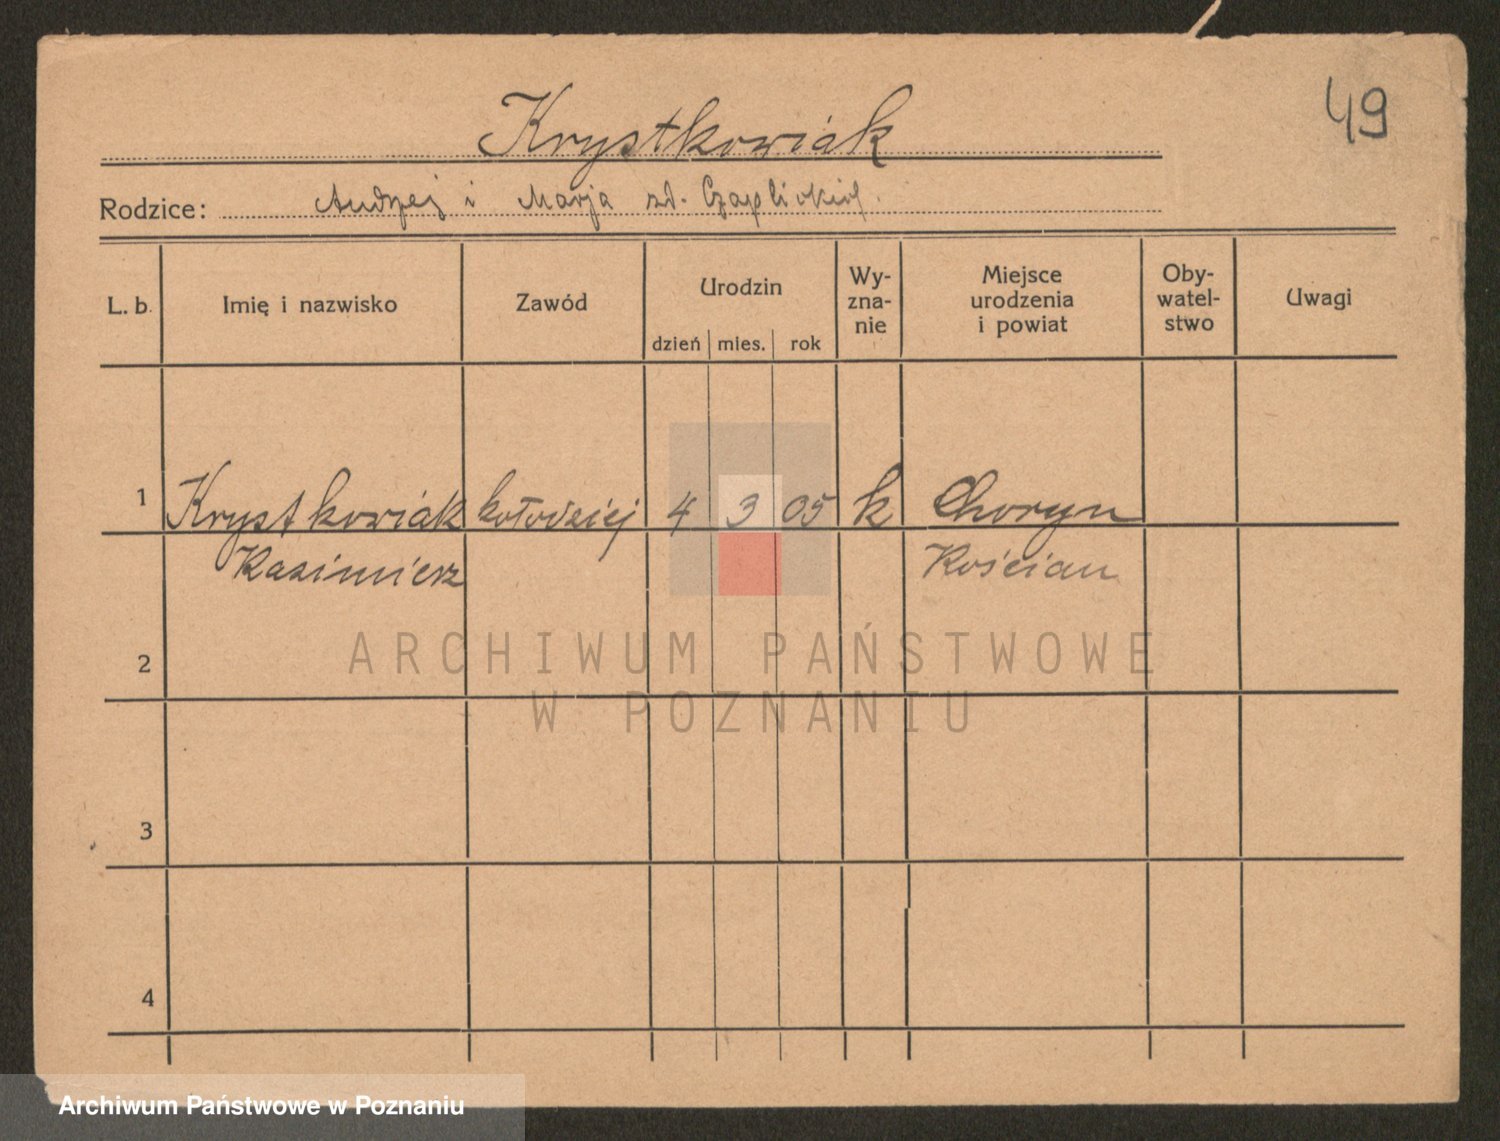 49
Krystkowiak
Rodzice: Andrzej i Marja zd. Czaplickich.
L. b. Imię i nazwisko Zawód Urodzin dzień mies. rok Wy- zna- nie Miejsce urodzenia i powiat Oby- watel- stwo Uwagi
1 Krystkowiak kołodziej 4 3 05 k Choryn
Kazimierz Kościan
2
ARCHIWUM PAŃSTWOWE
W POZNANIU
3
4
Archiwum Państwowe w Poznaniu